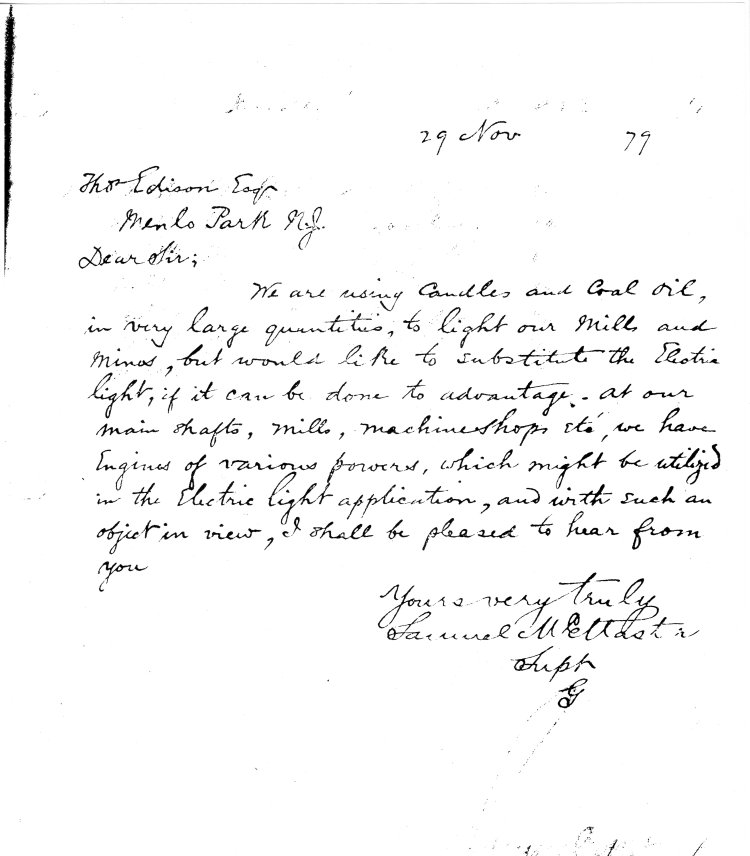 29 Nov 79
Thos Edison Esqr
Menlo Park N.J.
Dear Sir;
We are using Candles and Coal Oil,
in very large quantities, to light our Mills and
Mines, but would like to substitute the Electric
light, if it can be done to advantage. - at our
main shafts, Mills, Machineshops etc, we have
Engines of various powers, which might be utilized
in the Electric light application, and with such an
object in view, I shall be pleased to hear from
you
Yours very truly
Samuel
Supt
G